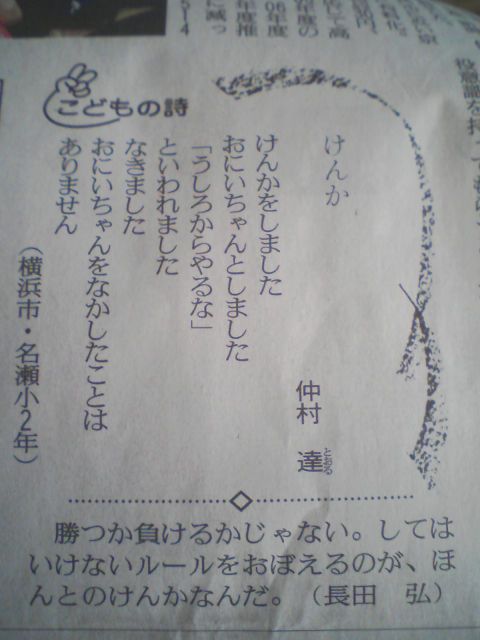 こどもの詩
けんか
仲村　達
とおる
けんかをしました
おにいちゃんとしました
「うしろからやるな」
といわれました
なきました
おにいちゃんをなかしたことは
ありません
（横浜市・名瀬小２年）
勝つか負けるかじゃない。しては
いけないルールをおぼえるのが、ほ
んとのけんかなんだ。（長田　弘）